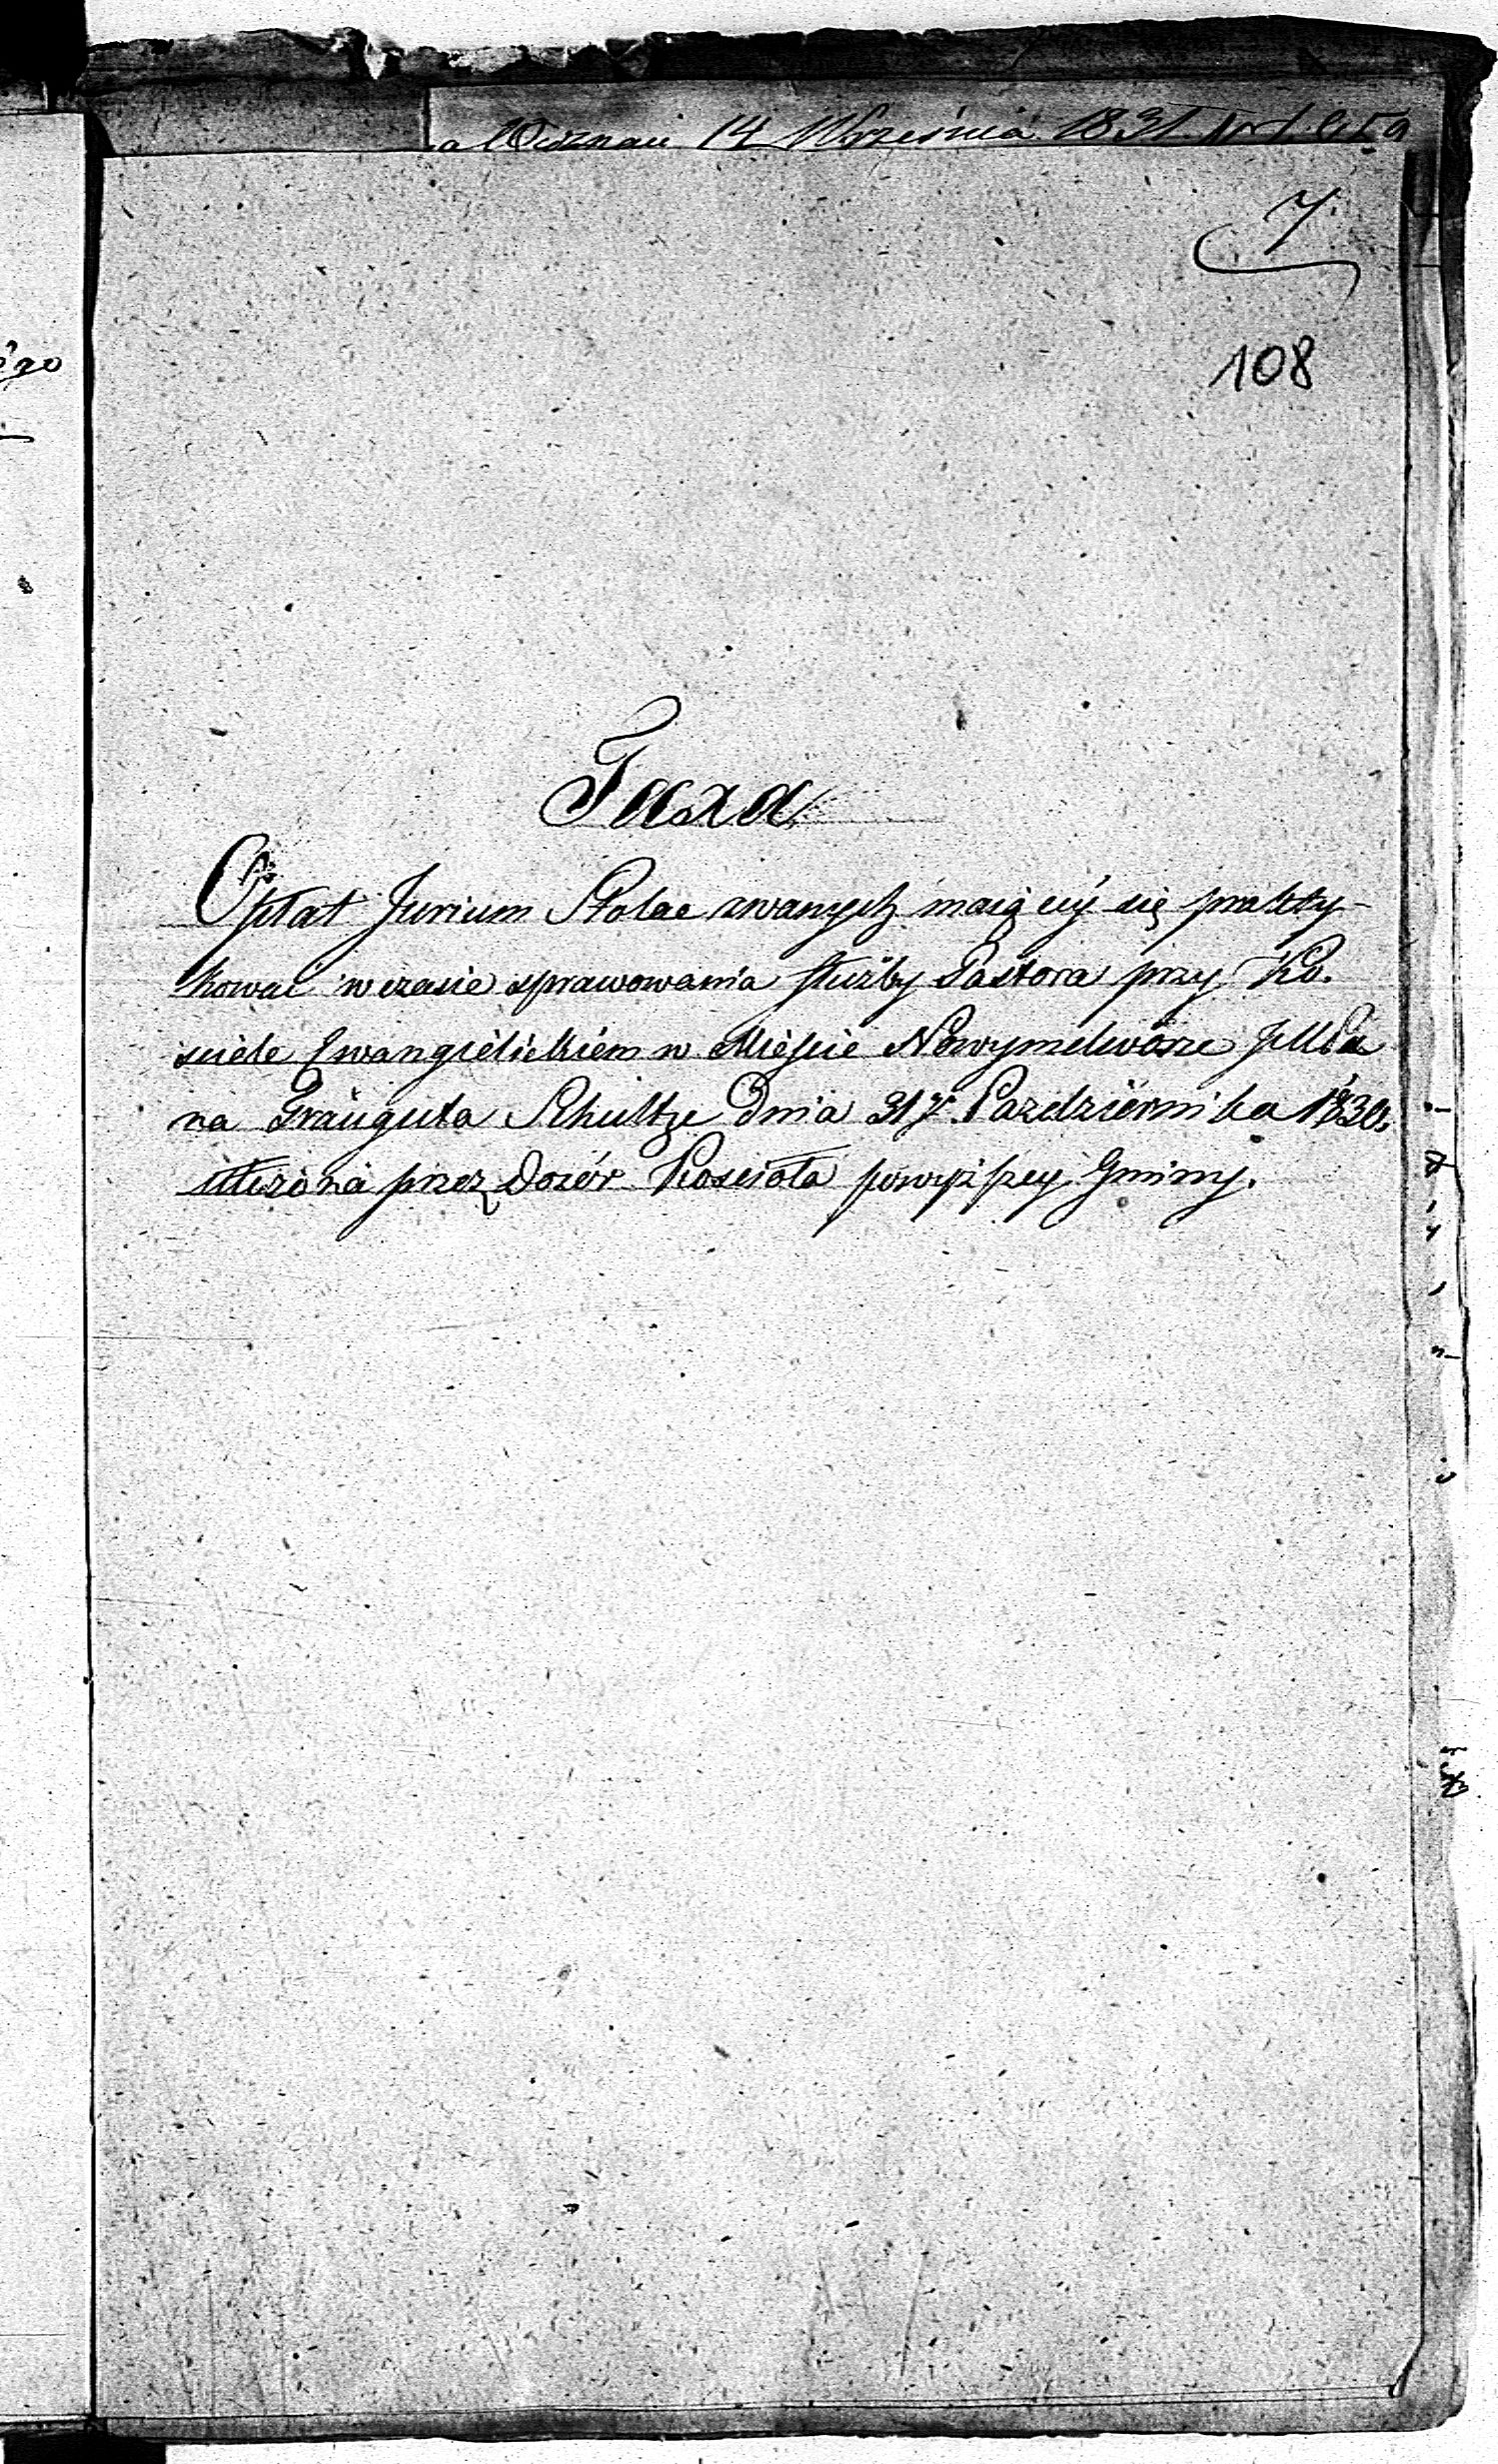 14 Września 1831
7.
108
Taxa
Opłat Jurium Stolae zwanych maiącÿ się prakty-
kować w czasie sprawowania służby Pastora przy Ko.
sciele Ewangielickiem w Mieście Nowymdworze JMPa
na Trauguta Schultze Dnia 31 Pazdziernika 1830.
ułożona przez Dozór Koscioła powyższey Gminy.